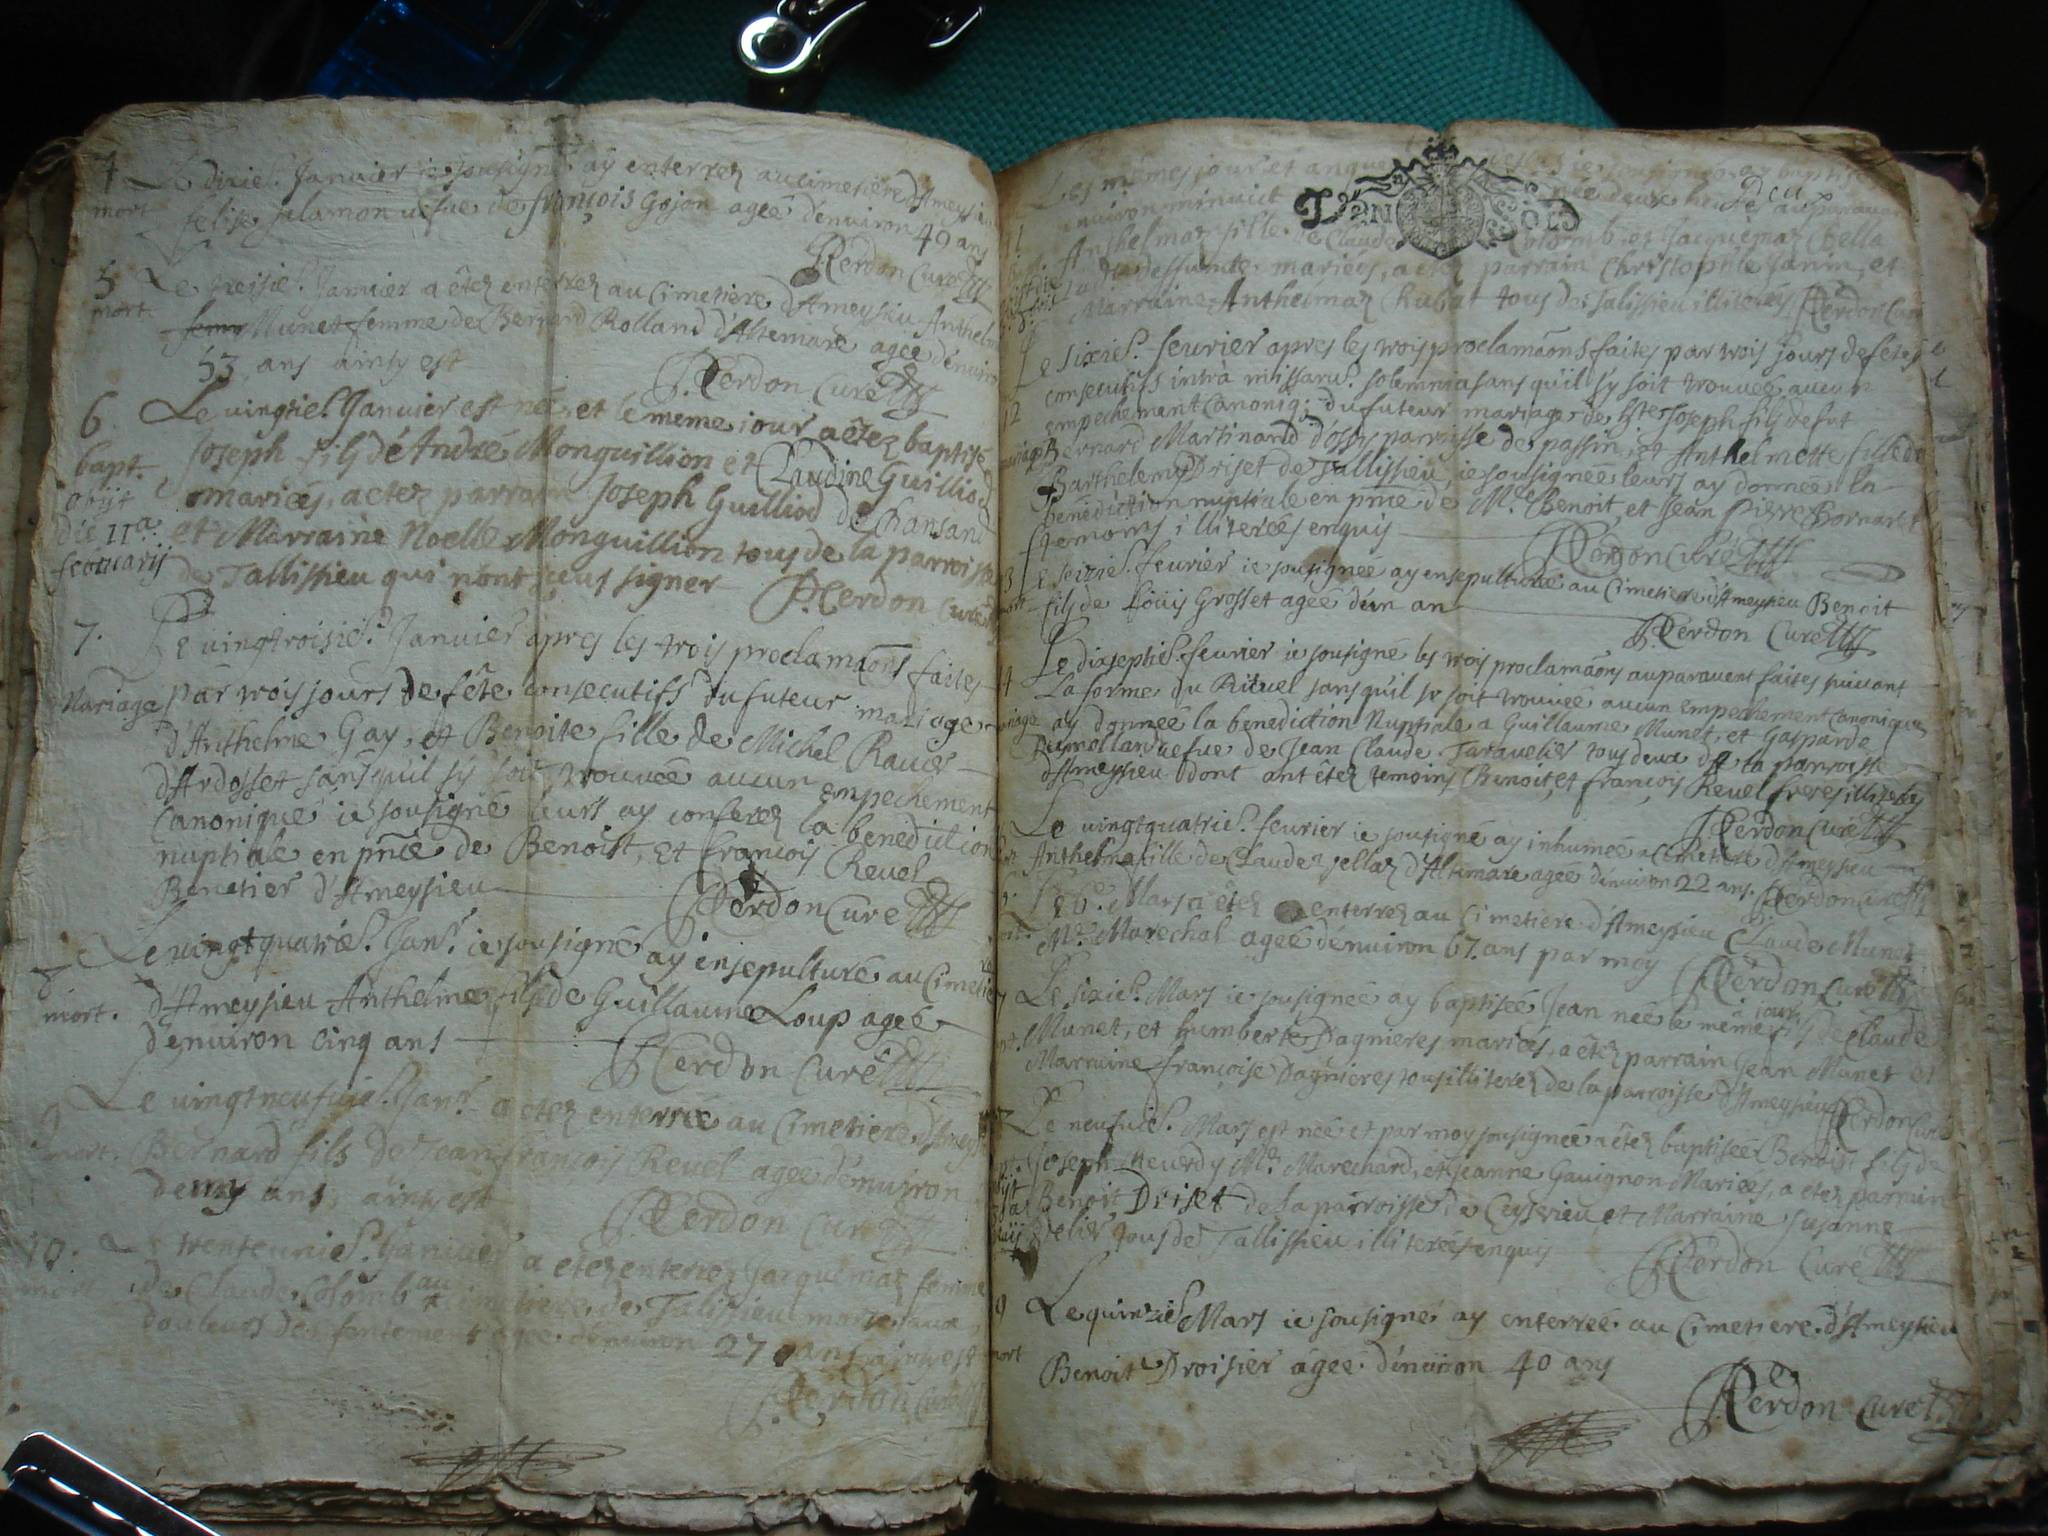 4 Le dixie.^ Janvier ie sousigné ay enterrez au cimetière d'Ameysieu
mort felise jalamon vefue de françois Gojon ageé d'enuiron 49 ans
PCerdon Curé
5 Le treisie.^ Janvier a êtez enterrez au Cimetiere d'Ameysieu Anthel
mort. Munet femme de Bernard Rolland d'Altemare ageé d'enuiron
53 ans ainsy est
PCerdon Curé
6 Le vingtie.^ Janvier est neé, et le meme iour a êtez baptisé
bapt. Joseph filz d'André Monguillion et Claudine Guilliod
obijt mariés, a etez parrain Joseph Guilliod de Chansand
die 11^a et Marraine Noelle Monguillion tous de la parroisse
februarij de Tallissieu qui n'ont sceus signer PCerdon Curé
7. Le vingtroisie.^ Janvier apres les trois proclamãons faites
Mariage par trois jours de fête consecutifs du futeur mariage
d'Anthelme Gay, et Benoite fille de Michel Ravier
d'Ardosset sans quil sy soit trouveé aucun empechement
Canonique ie sousigné leurs ay conferez la benediction
nuptiale en pñce de Benoist, et francois Reuel
Benetier d'Ameysieu
PCerdon Curé
8 Le vingtquatrie.^ Jan.^r ie sousigné ay ensepulturé au Cimetiere
mort. d'Ameysieu Anthelme filz de Guillaume Loup ageé
d'enuiron cinq ans
PCerdon Curé
9 Le vingtneufuie.^ Jan.^r a êtez enterreé au Cimetiere d'Ameys
mort. Bernard fils de Jean françois Reuel ageé d'enuiron
demy ans, ainsy est
PCerdon Curé
10. Le trenteunie.^ Janvier a etez enterrez Jacquemaz femme
mort de Claude Colomb au Cimetiere de Talissieu morte aux
douleurs de lenfentement ageé d'enuiron 27 ans ainsy est
PCerdon Curé
Les mêmes jour et an que dessus ie sousigné ay baptisé
enuiron minuict neé deux heures auparavant
DEN OD
Deux
Anthelmaz fille de Claude Colomb et Jacquemaz Bella
ladite deffunte mariés, a etez parrain Christophle Janin, et
Marraine Anthelmaz Chabat tous de Talissieu illiterés PCerdon Curé
Le sixie.^ feurier apres les trois proclamãons faites par trois jours de fetes
consecutifs intrà missaru.^ solemnia sans quil sy soit trouveé aucun
12 empechement canoniq; du futeur mariage de h.^te Joseph filz de fut
mariage Bernard Martinand d'ossy parroisse de passin, et Anthelmette fille de
Barthelemy Driset de Tallissieu, ie sousigneé leurs ay donneé la
bénédiction nuptiale en pñce de M.^e Benoit, et Jean Pierre Bornarel
temoins illitereés enquis
PCerdon Curé
13 Le seizie.^ feurier ie sousigneé ay ensepulturé au Cimetiere d'Ameysieu Benoit
mort filz de Loüis Grosset ageé d'un an
PCerdon Curé
14 Le dixseptie.^ feurier ie sousigné les trois proclamãons auparavent faites suivant
la forme du Rituel sans quil sy soit trouveé aucun empechement canonique
mariage ay donneé la benediction Nuptiale a Guillaume Munet, et Gasparde
Reymollan vefue de Jean Claude Taravelier tous deux de la parroisse
d'Ameysieu dont ant êtez temoins Benoit, et françois Reuel freres illiterés
PCerdon Curé
Le vingtquatrie.^ feurier ie sousigné ay inhumeé a Cimetiere d'Ameysieu
Anthelma fille de Claude Jellaz d'Altemare ageé d'enuiron 22 ans. PCerdon Curé
Le 6.^e Mars a êtez enterrez au Cimetiere d'Ameysieu Claude Munet
M.^e Marechal ageé d'enuiron 67. ans par moy
PCerdon Curé
Le sixie.^ Mars ie sousigneé ay baptiseé Jean neé le même jour filz de Claude
Munet, et humberte Dagnieres mariés, a êtez parrain Jean Munet et
Marraine françoise Dagnieres tous illiterez de la parroisse d'Ameysieu PCerdon Curé
Le neufuie.^ Mars est neé et par moy sousigneé a êtez baptiseé Benoist filz de
Joseph M.^e Marechand, et Jeanne Gavignon Mariés, a etez parrain
Benoit Driset de la parroisse de Ceyserieu et Marraine Susanne
tous de Tallissieu illitereés enquis
PCerdon Curé
19 Le quinzie.^ Mars ie sousigné ay enterreé au Cimetiere d'Ameysieu
mort Benoit Droisier ageé d'enuiron 40 ans
PCerdon Curé